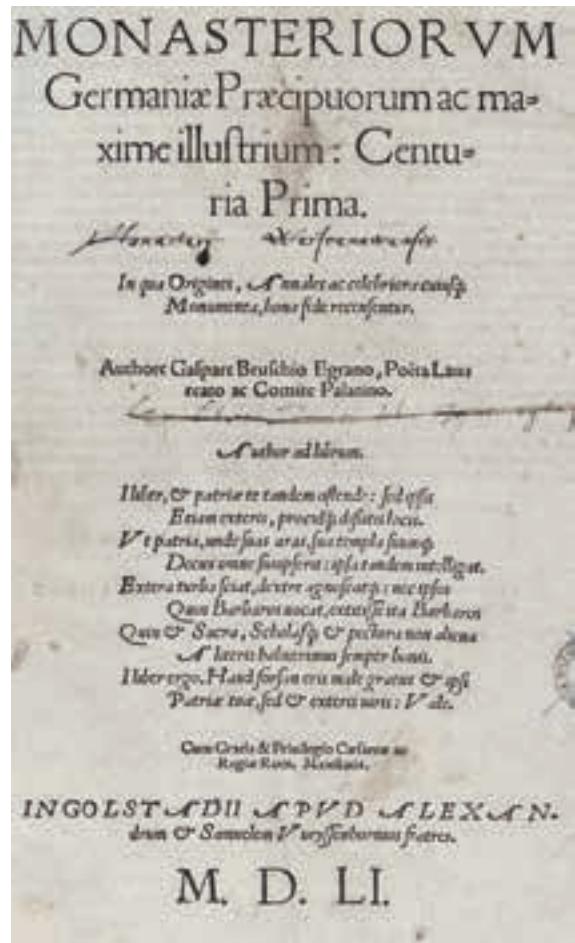 MONASTERIORVM
Germaniæ Præcipuorum ac ma-
xime illuſtrium: Centu-
ria Prima.
In qua Origines, Annales ac celebriora cuiuſq́;
Monumenta, bona fide recenſentur.
Authore Gaſpare Bruſchio Egrano, Poëta Lau
reato ac Comite Palatino.
Author ad librum.
I liber, & patriæ te tandem oſtende: ſed ipſis
Etiam exteris, procul diſsitis locis.
Vt patria, unde ſuas aras, ſua templa ſuumq́;
Decus omne ſuſceperit: ipſa tandem intelligat.
Extera turba ſciat, dextre agnoſcatq́;: nec ipſos
Quos Barbaros uocat, extitiſſe ita Barbaros
Quin & Sacra, Scholaſq́; & pectora non aliena
A literis habuerimus ſemper bonis.
I liber ergo. Haud forſan eris male gratus & ipſi
Patriæ tuæ, ſed & exteris uiris: Vale.
Cum Gratia & Priuilegio Cæſareæ ac
Regiæ Rom. Maieſtatis.
INGOLSTADII APVD ALEXAN-
drum & Samuelem Vueyſſenhornios fratres.
M. D. LI.